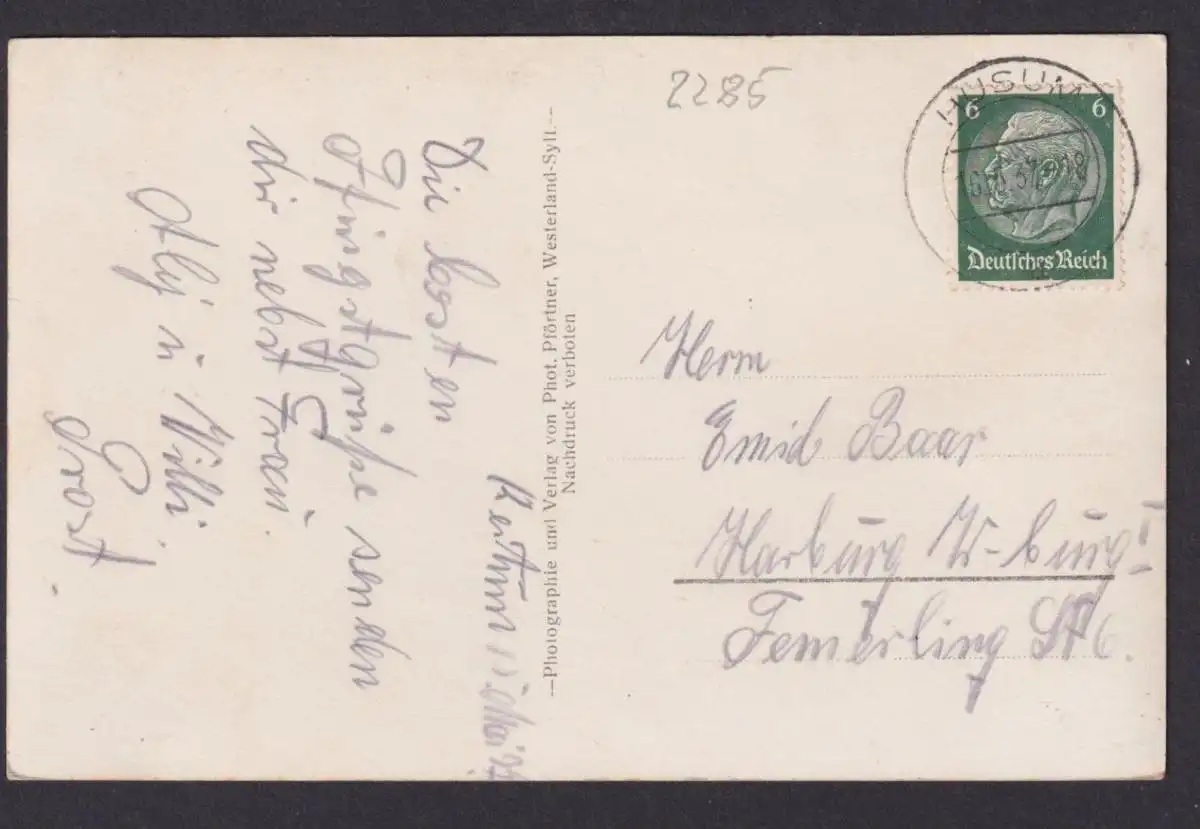 2285
HUSUM
6 6
Deutsches Reich
Keitum
Die besten
Pfingstgrüße senden
dir nebst Frau
Willi
Prost.
—Photographie und Verlag von Phot. Pförtner, Westerland-Sylt.—
Nachdruck verboten
Herrn
Emil Baar
Harburg W-burg I
Femerling St 6.